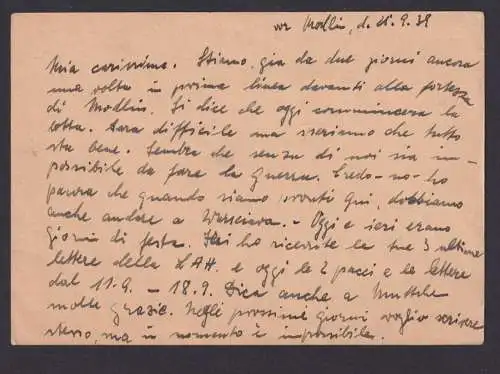 vor Modlin, d. 21.9.39
Mia carissima. Stiamo già da due giorni ancora
una volta in prima linea davanti alla fortezza
di Modlin. Si dice che oggi commincera la
lotta. Sara difficile ma speriamo che tutto
sta bene. Sembra che senza di noi sia im-
possibile da fare la guerra. Credo - no - ho
paura che quando siamo pronti qui, dobbiamo
anche andare a Varsciava. - Oggi e ieri erano
giorni di festa. Ieri ho ricevute le tue 3 ultime
lettere della LAH. e oggi le 2 pacci e le lettere
dal 11.9. - 18.9. Dica anche a Muttchen
molte grazie. Nelli prossimi giorni voglio scrivere
stesso, ma in momento è impossibile.